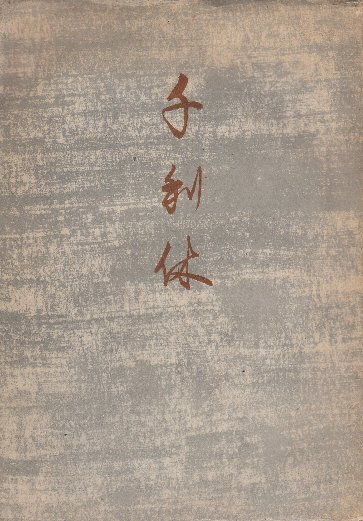 千利休